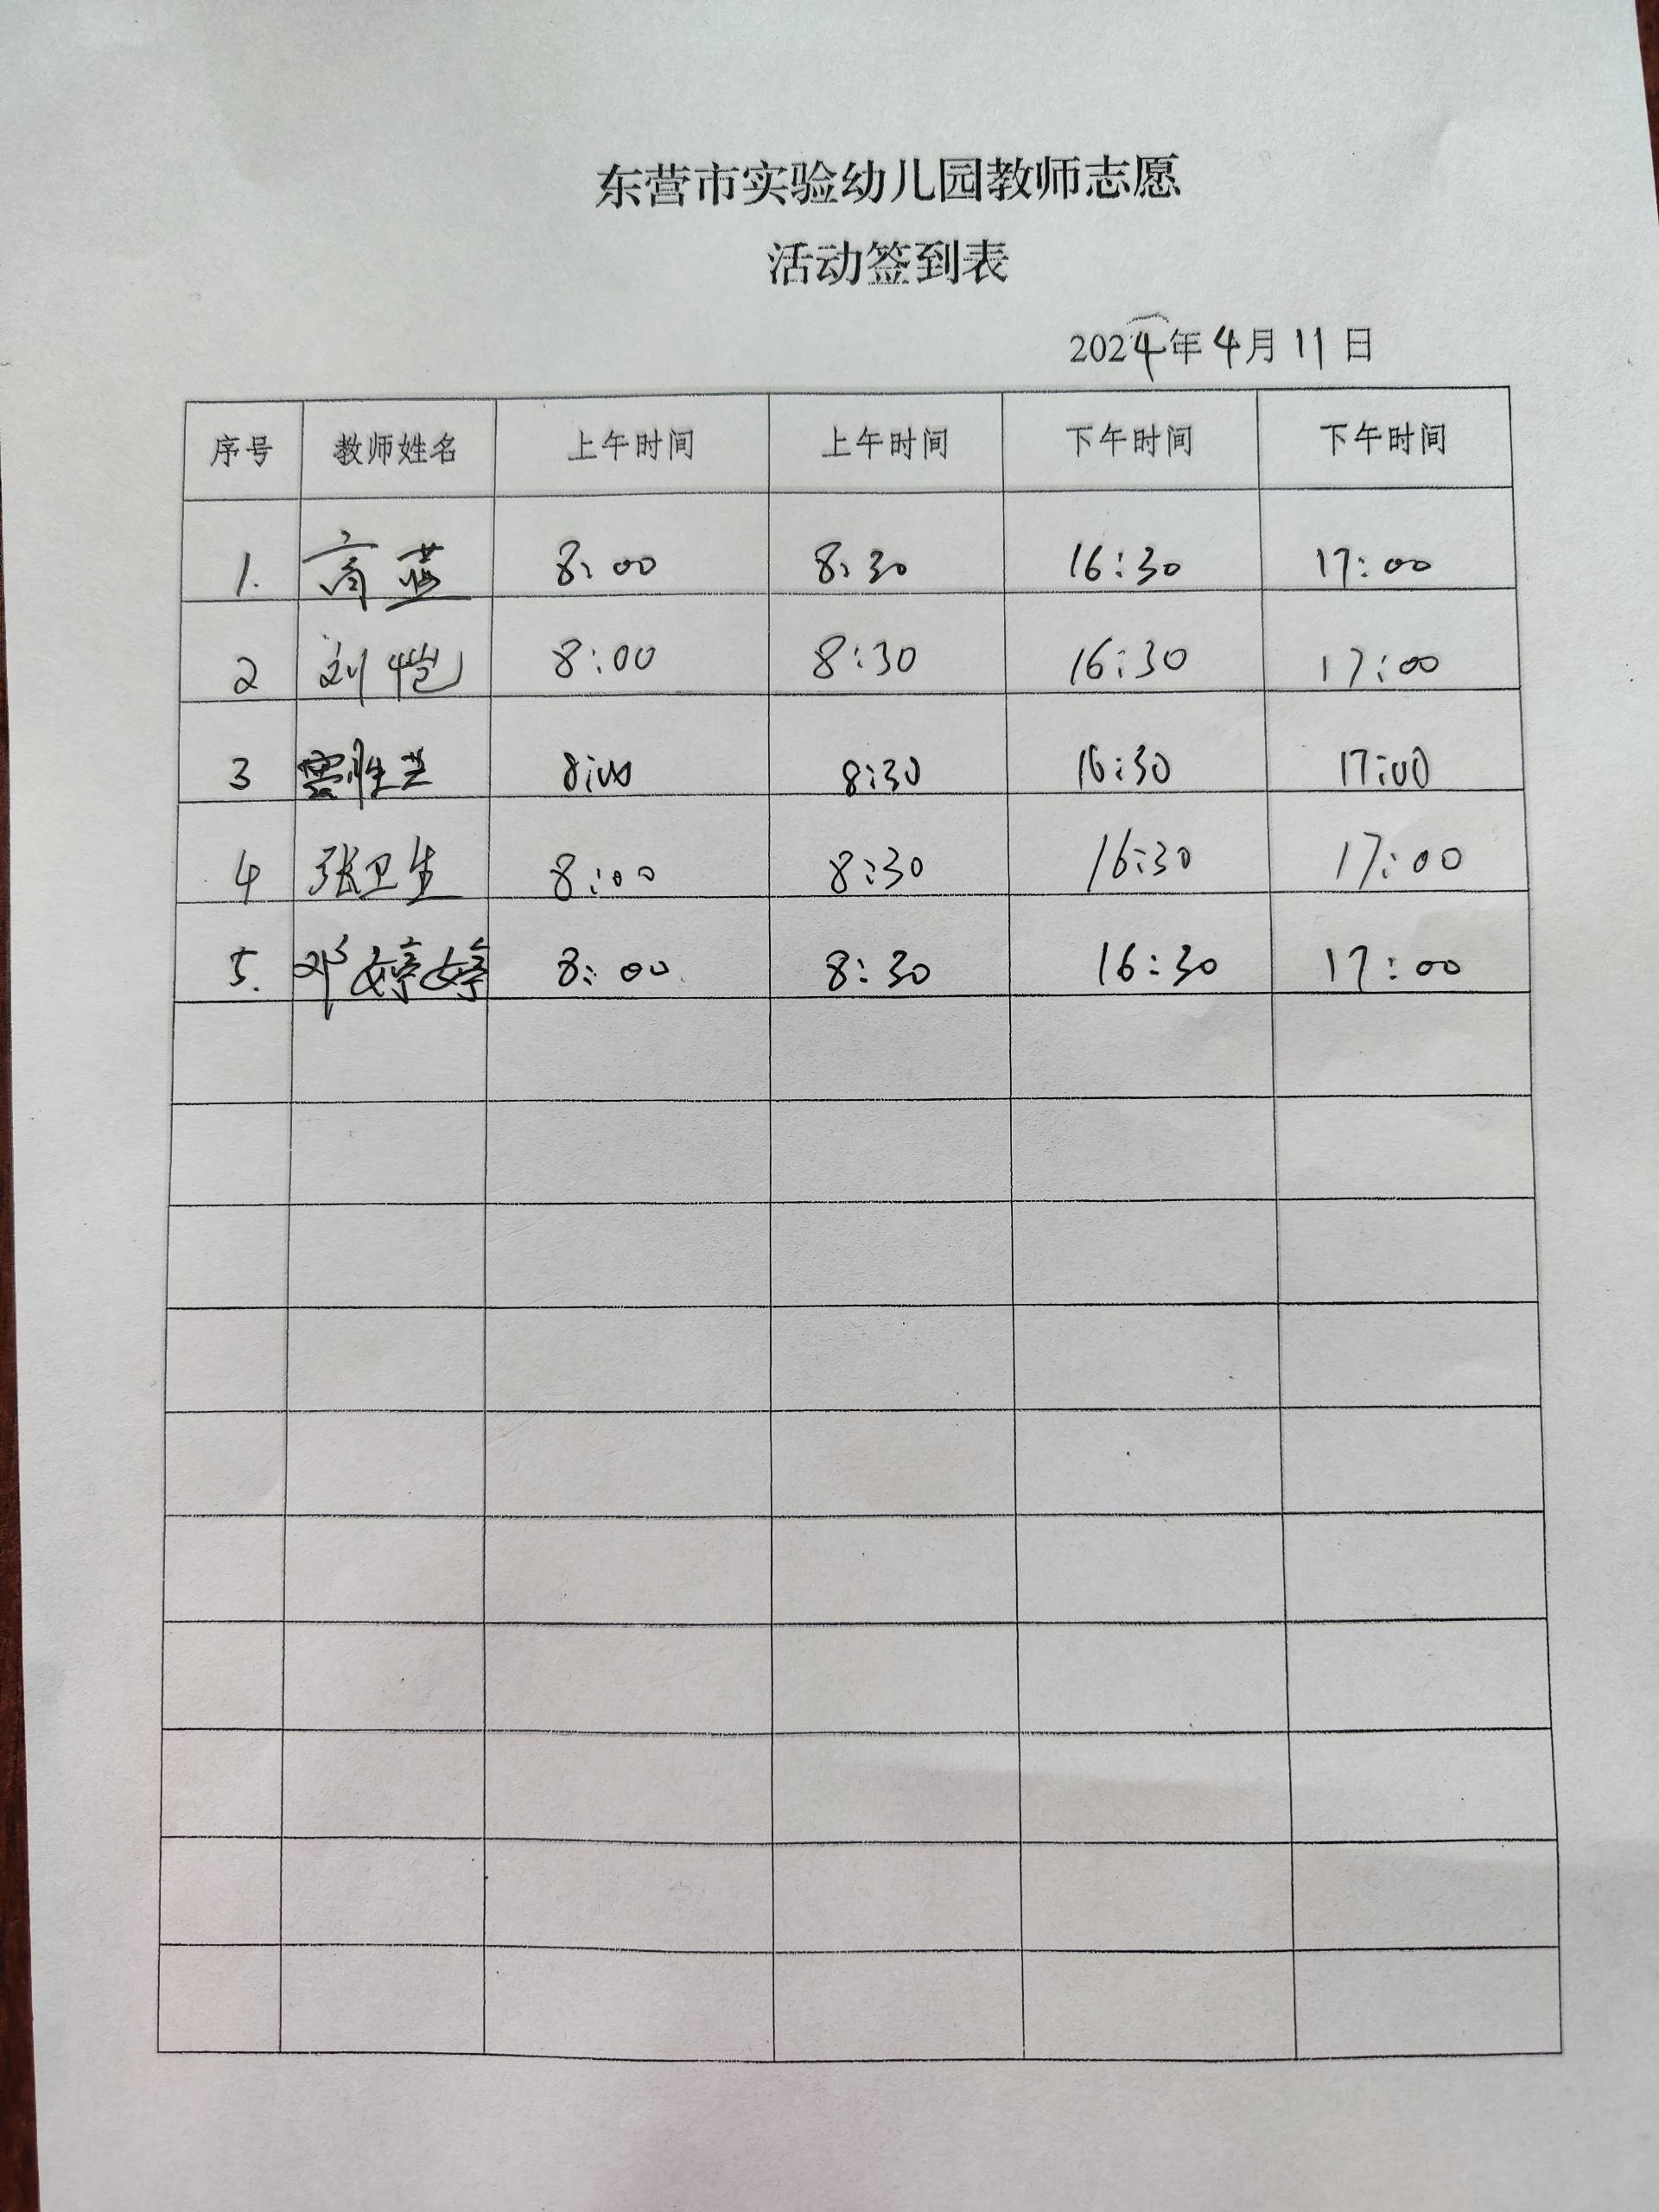 东营市实验幼儿园教师志愿
活动签到表
2024年4月11日
序号 教师姓名 上午时间 上午时间 下午时间 下午时间
1. 商蓝 8:00 8:30 16:30 17:00
2 刘恺 8:00 8:30 16:30 17:00
3 8:00 8:30 16:30 17:00
4 张卫生 8:00 8:30 16:30 17:00
5. 邓婷婷 8:00 8:30 16:30 17:00